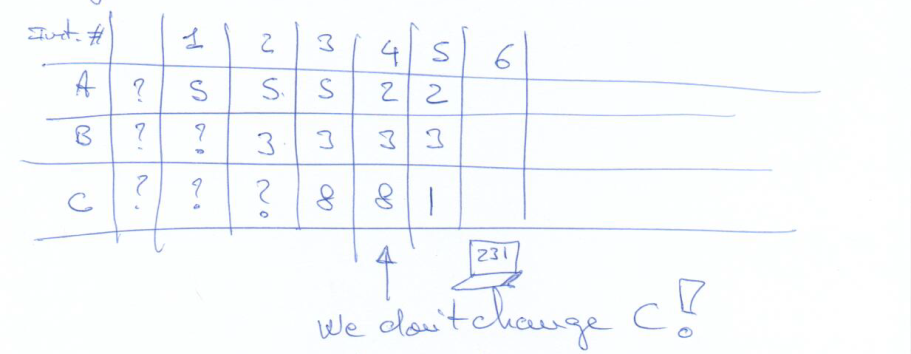 Inst. # 1 2 3 4 5 6
A ? 5 5. 5 2 2
B ? ? 3 3 3 3
C ? ? ? 8 8 1
231
We don't change C!